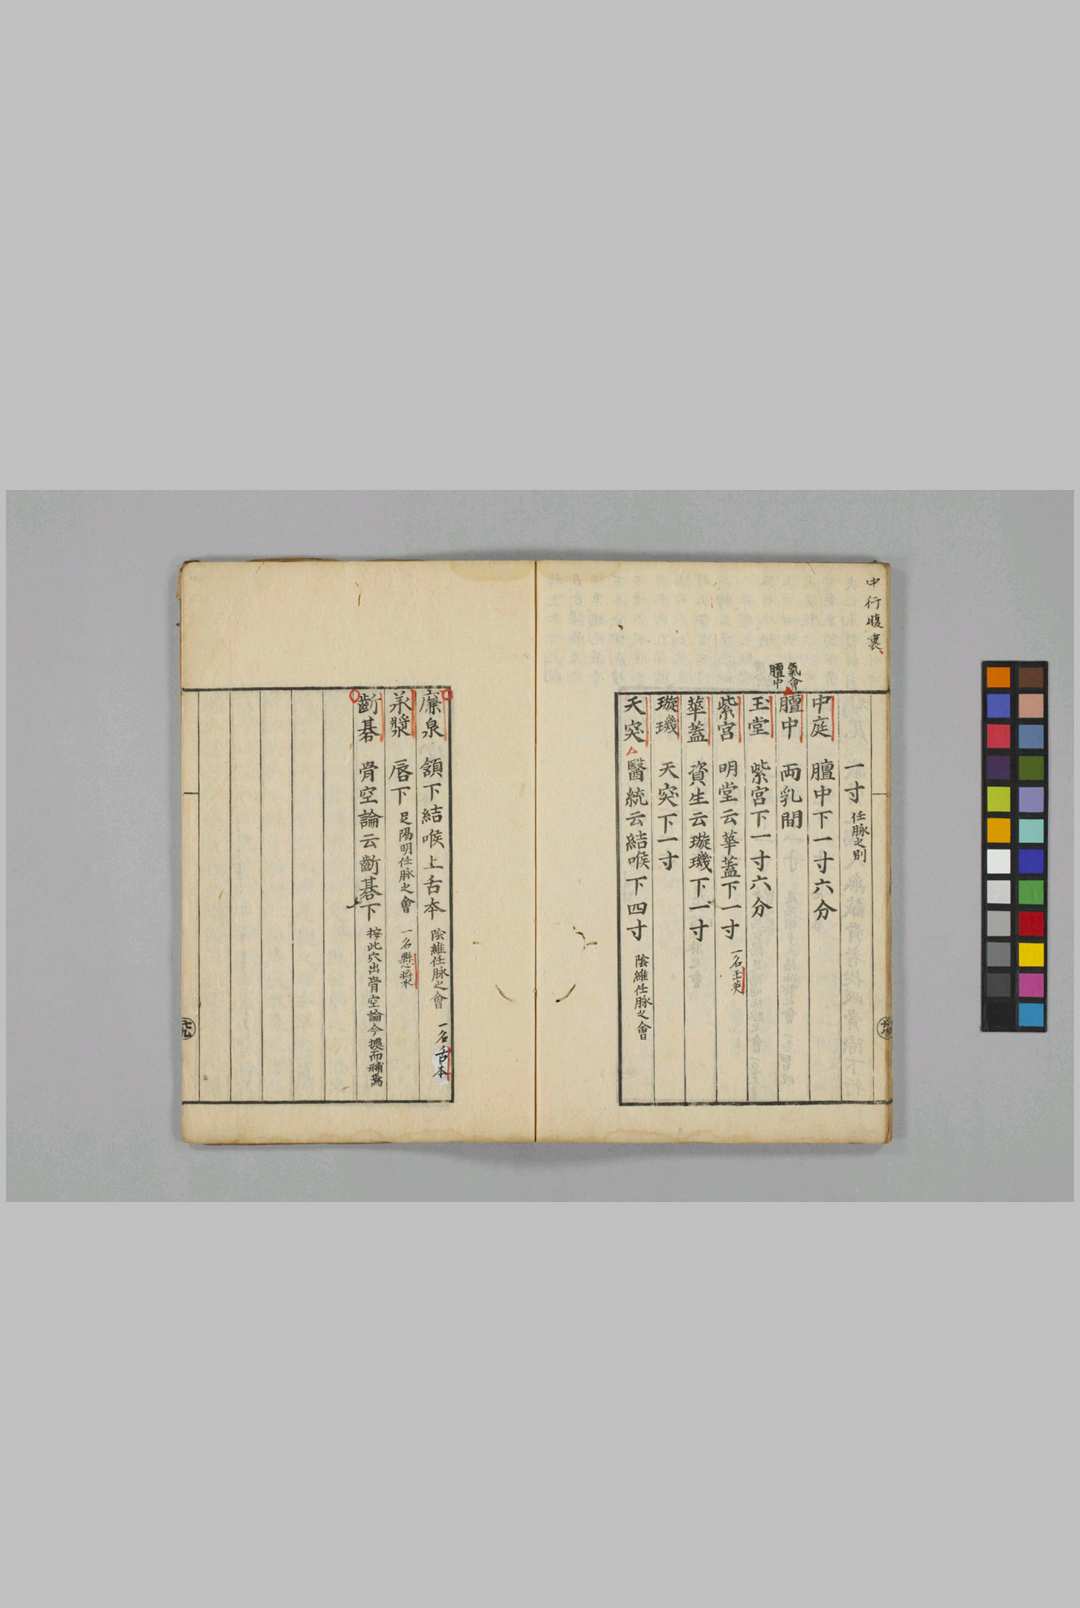 中行腹裏
一寸 任脉之別
中庭 膻中下一寸六分
氣會膻中
膻中 両乳間
玉堂 紫宮下一寸六分
紫宮 明堂云華蓋下一寸 一名玉英
華蓋 資生云璇璣下一寸
璇璣 天突下一寸
天突 醫統云結喉下四寸 陰維任脉之會
廉泉 頷下結喉上舌本 陰維任脉之會 一名舌本
承漿 唇下 足陽明任脉之會 一名懸漿
齗基 骨空論云齗基下 按此穴出骨空論今據而補焉